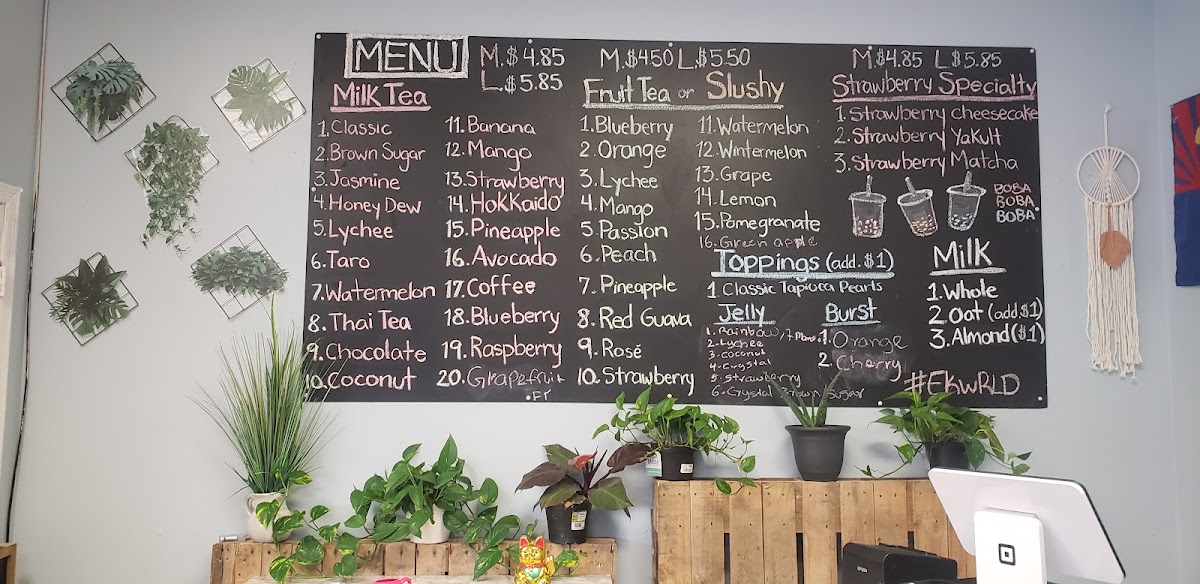 MENU
M.$4.85
L.$5.85
Milk Tea
1. Classic
2. Brown Sugar
3. Jasmine
4. Honey Dew
5. Lychee
6. Taro
7. Watermelon
8. Thai Tea
9. Chocolate
10. Coconut
11. Banana
12. Mango
13. Strawberry
14. Hokkaido
15. Pineapple
16. Avocado
17. Coffee
18. Blueberry
19. Raspberry
20. Grapefruit
M.$4.50 L.$5.50
Fruit Tea or Slushy
1. Blueberry
2. Orange
3. Lychee
4. Mango
5. Passion
6. Peach
7. Pineapple
8. Red Guava
9. Rosé
10. Strawberry
11. Watermelon
12. Wintermelon
13. Grape
14. Lemon
15. Pomegranate
16. Green apple
Toppings (add.$1)
1 Classic Tapioca Pearls
Jelly
1. Rainbow
2. Lychee
3. coconut
4. Crystal
5. Strawberry
6. Crystal Brown Sugar
Burst
1. Orange
2. Cherry
M.$4.85 L.$5.85
Strawberry Specialty
1. Strawberry cheesecake
2. Strawberry Yakult
3. Strawberry Matcha
BOBA
BOBA
BOBA
Milk
1. Whole
2. Oat (add.$1)
3. Almond ($1)
#EKWRLD
EPSON